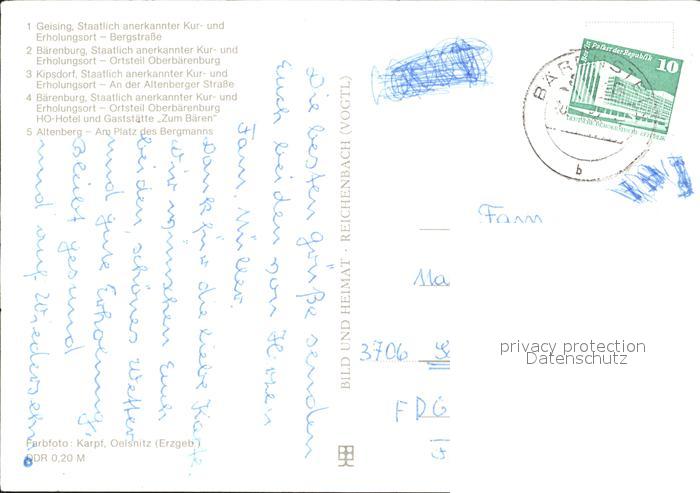 1 Geising, Staatlich anerkannter Kur- und
Erholungsort – Bergstraße
2 Bärenburg, Staatlich anerkannter Kur- und
Erholungsort – Ortsteil Oberbärenburg
3 Kipsdorf, Staatlich anerkannter Kur- und
Erholungsort – An der Altenberger Straße
4 Bärenburg, Staatlich anerkannter Kur- und
Erholungsort – Ortsteil Oberbärenburg
HO-Hotel und Gaststätte „Zum Bären"
5 Altenberg – Am Platz des Bergmanns
Die besten Grüße senden
Euch beiden von
Fam. Müller.
Dank für die liebe Karte.
Wir wünschen Euch
beiden, schönes Wetter
und gute Erholung,
Bleibt gesund
und auf Wiedersehn
Farbfoto: Karpf, Oelsnitz (Erzgeb.)
DDR 0,20 M
BILD UND HEIMAT · REICHENBACH (VOGTL)
Berlin Palast der Republik
10
DEUTSCHE DEMOKRATISCHE REPUBLIK
b
Fam
Ma
3706
FDG
privacy protection
Datenschutz